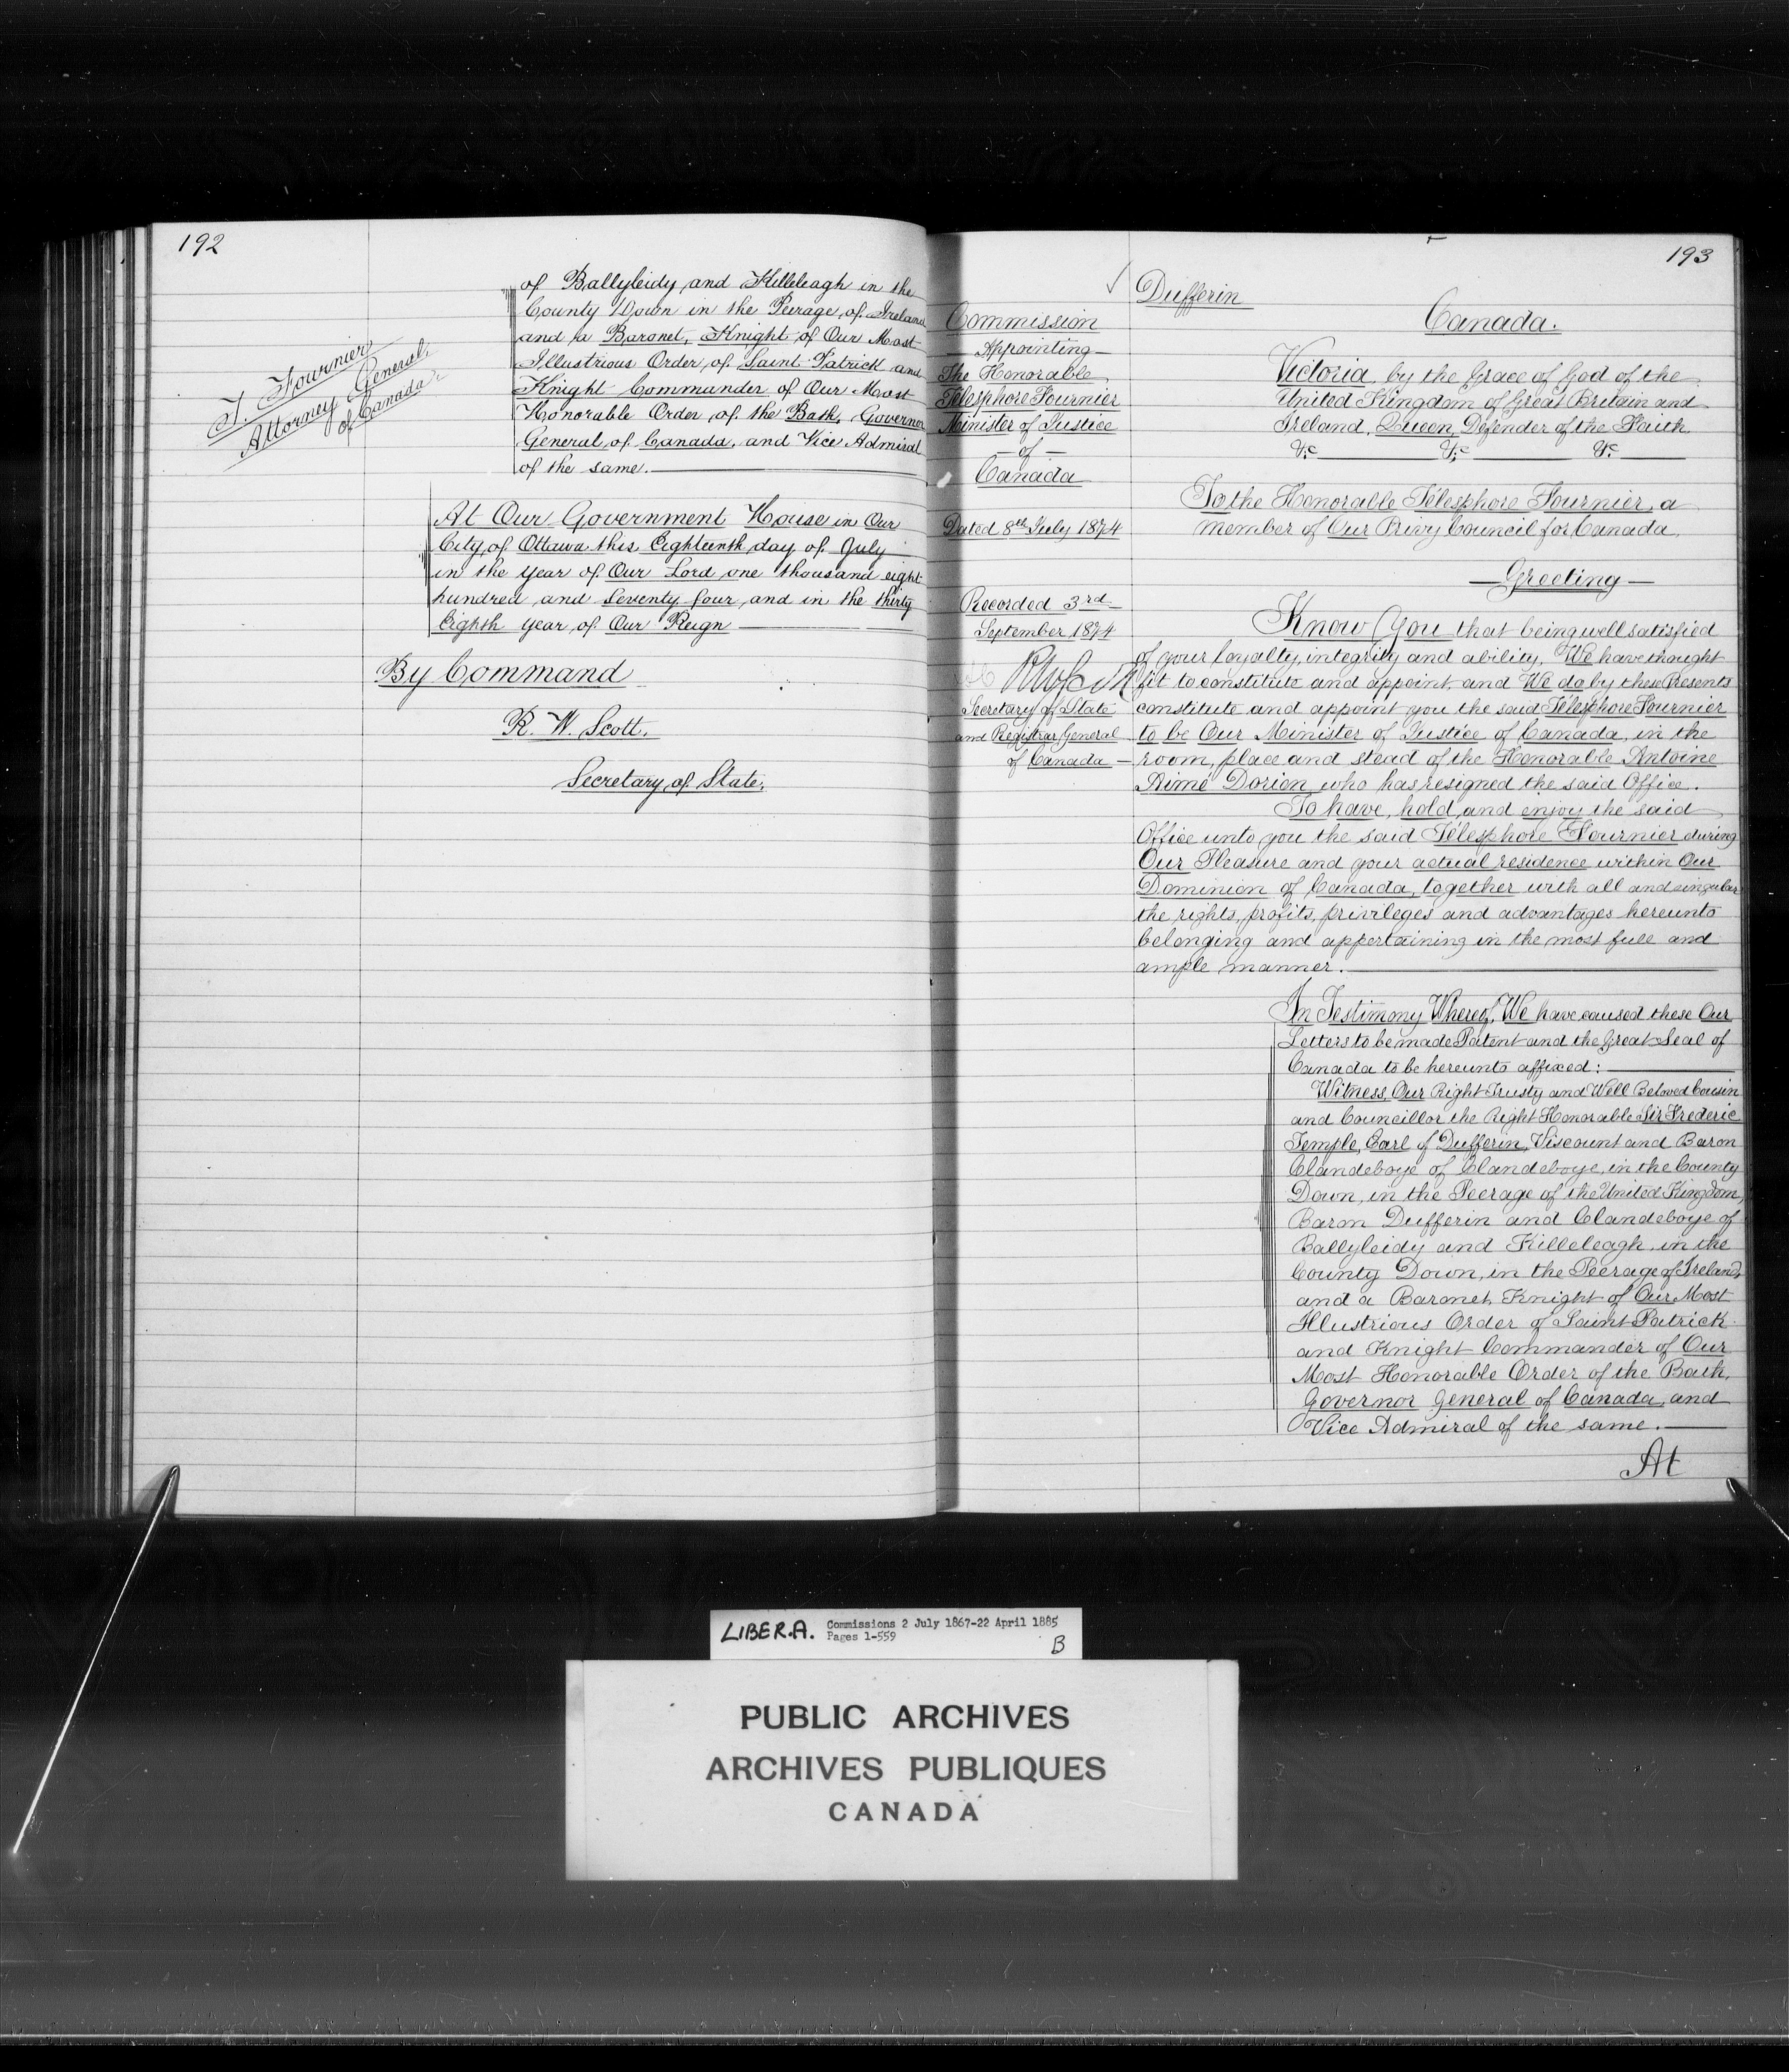 192
T. Fournier
Attorney General
of Canada
of Ballyleidy and Killeleagh in the
County Down in the Peerage of Ireland
and a Baronet, Knight of Our Most
Illustrious Order of Saint Patrick and
Knight Commander of Our Most
Honorable Order of the Bath, Governor
General of Canada, and Vice Admiral
of the same.
At Our Government House in Our
City of Ottawa this Eighteenth day of July
in the year of Our Lord one thousand eight
hundred and seventy four, and in the thirty
Eighth year of Our Reign
By Command
R. W. Scott.
Secretary of State.
193
Commission
Appointing
The Honorable
Télesphore Fournier
Minister of Justice
of
Canada
Dated 8th July 1874
Recorded 3rd
September 1874
Secretary of State
and Registrar General
of Canada
Dufferin
Canada.
Victoria, by the Grace of God of the
United Kingdom of Great Britain and
Ireland, Queen, Defender of the Faith
&c &c &c
To the Honorable Télesphore Fournier, a
member of Our Privy Council for Canada.
Greeting
Know You that being well satisfied
of your loyalty, integrity and ability, We have thought
fit to constitute and appoint, and We do by these Presents
constitute and appoint you the said Télesphore Fournier
to be Our Minister of Justice of Canada, in the
room, place and stead of the Honorable Antoine
Aimé Dorion who has resigned the said Office.
To have, hold, and enjoy the said
Office unto you the said Télesphore Fournier during
Our Pleasure and your actual residence within Our
Dominion of Canada, together with all and singular
the rights, profits, privileges and advantages hereunto
belonging and appertaining in the most full and
ample manner.
In Testimony Whereof, We have caused these Our
Letters to be made Patent and the Great Seal of
Canada to be hereunto affixed:
Witness, Our Right Trusty and Well Beloved Cousin
and Councillor the Right Honorable Sir Frederic
Temple, Earl of Dufferin, Viscount and Baron
Clandeboye of Clandeboye, in the County
Down, in the Peerage of the United Kingdom,
Baron Dufferin and Clandeboye of
Ballyleidy and Killeleagh, in the
County Down, in the Peerage of Ireland,
and a Baronet, Knight of Our Most
Illustrious Order of Saint Patrick
and Knight Commander of Our
Most Honorable Order of the Bath,
Governor General of Canada, and
Vice Admiral of the same.
At
LIBER.A. Commissions 2 July 1867-22 April 1885
Pages 1-559
B
PUBLIC ARCHIVES
ARCHIVES PUBLIQUES
CANADA